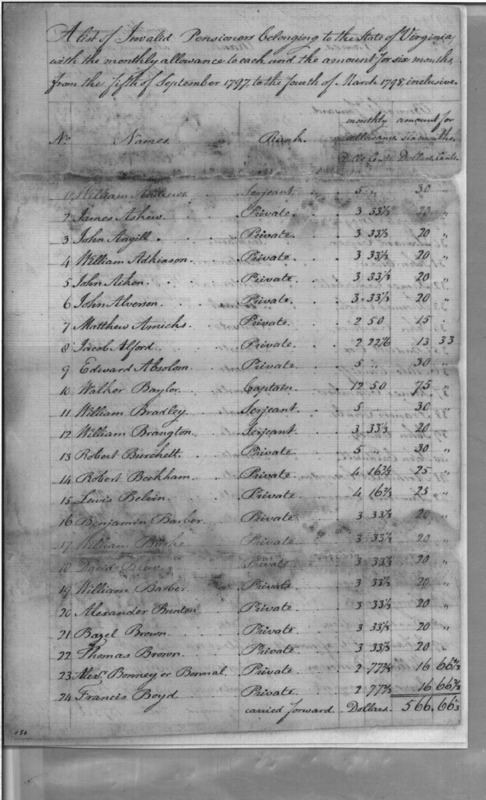 A list of Invalid Pensioners belonging to the State of Virginia,
with the monthly allowance to each and the amount for six months,
from the fifth of September 1797, to the fourth of March 1798, inclusive.
No. Names. Rank. monthly allowance Dolls. Cents amount for six months. Dollars. Cents.
1 William Andrews Serjeant 5 „ 30 „
2 James Askew Private 3 33⅓ 20 „
3 John Angill Private 3 33⅓ 20 „
4 William Adkinson Private 3 33⅓ 20 „
5 John Aiken Private 3 33⅓ 20 „
6 John Alverson Private 3 33⅓ 20 „
7 Matthew Amicks Private 2 50 15 „
8 Jacob Alford Private 2 22 13 33
9 Edward Absolom Private 5 „ 30 „
10 Walker Baylor Captain 12 50 75 „
11 William Bradley Serjeant 5 30 „
12 William Brangton Serjeant 3 33⅓ 20 „
13 Robert Burchett Private 5 „ 30 „
14 Robert Beckham Private 4 16⅔ 25 „
15 Lewis Belvin Private 4 16⅔ 25 „
16 Benjamin Barber Private 3 33⅓ 20 „
17 William Private 3 33⅓ 20 „
18 David Private 3 33⅓ 20 „
19 William Barber Private 3 33⅓ 20 „
20 Alexander Bunton Private 3 33⅓ 20 „
21 Bazel Brown Private 3 33⅓ 20 „
22 Thomas Brown Private 3 33⅓ 20 „
23 Alexr. Bonney or Bonnal Private 2 77⅞ 16 66⅔
24 Francis Boyd Private 2 77⅞ 16 66⅔
carried forward Dollars. 566,66⅔